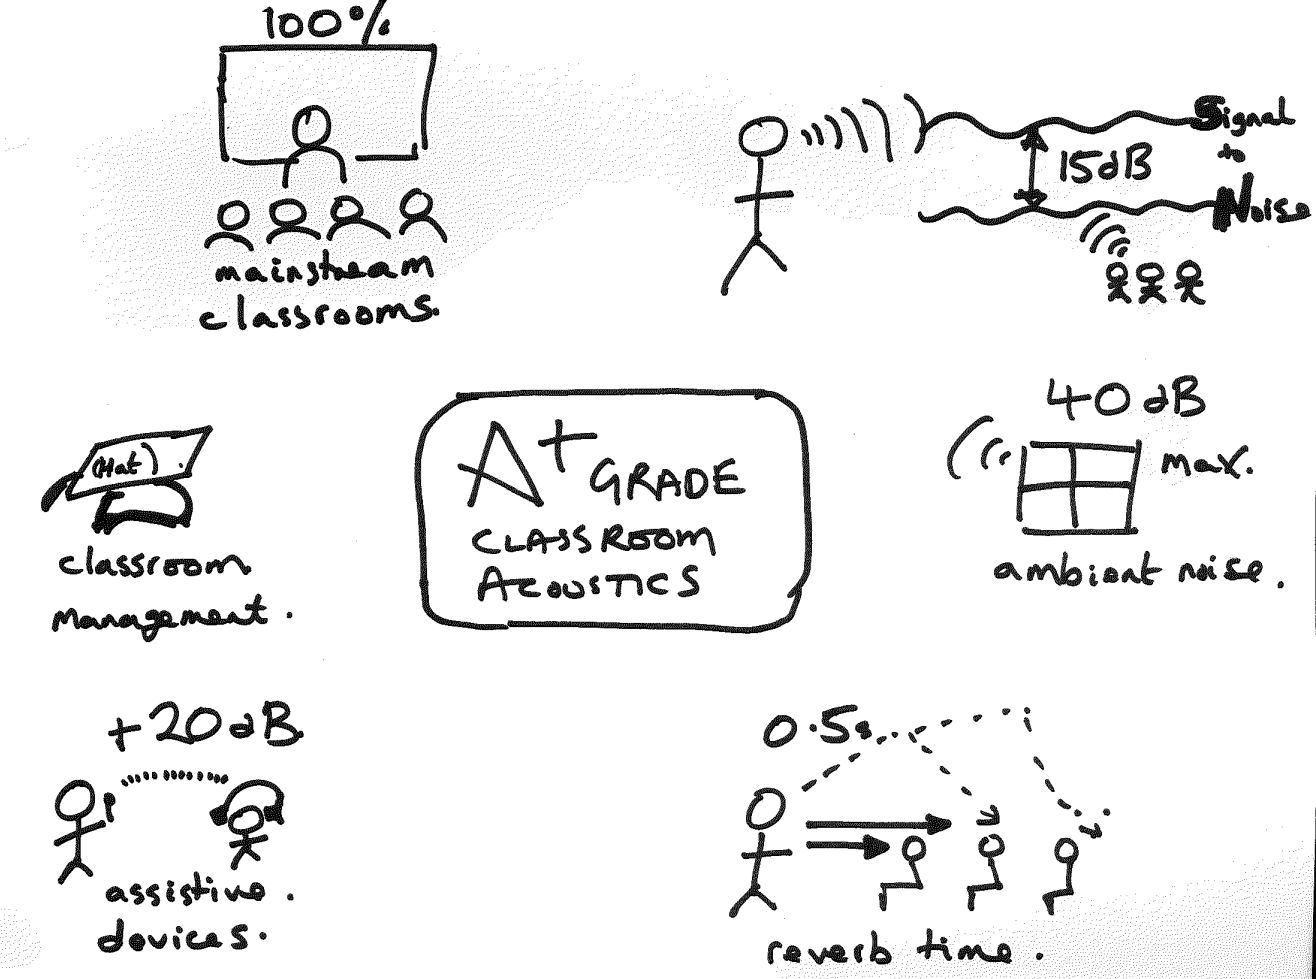 100%
mainstream
classrooms.
Signal
to
Noise
15dB
(Hat)
classroom
management.
A+ GRADE
CLASSROOM
ACOUSTICS
40 dB
max.
ambient noise.
+20dB
assistive.
devices.
0.5s
reverb time.